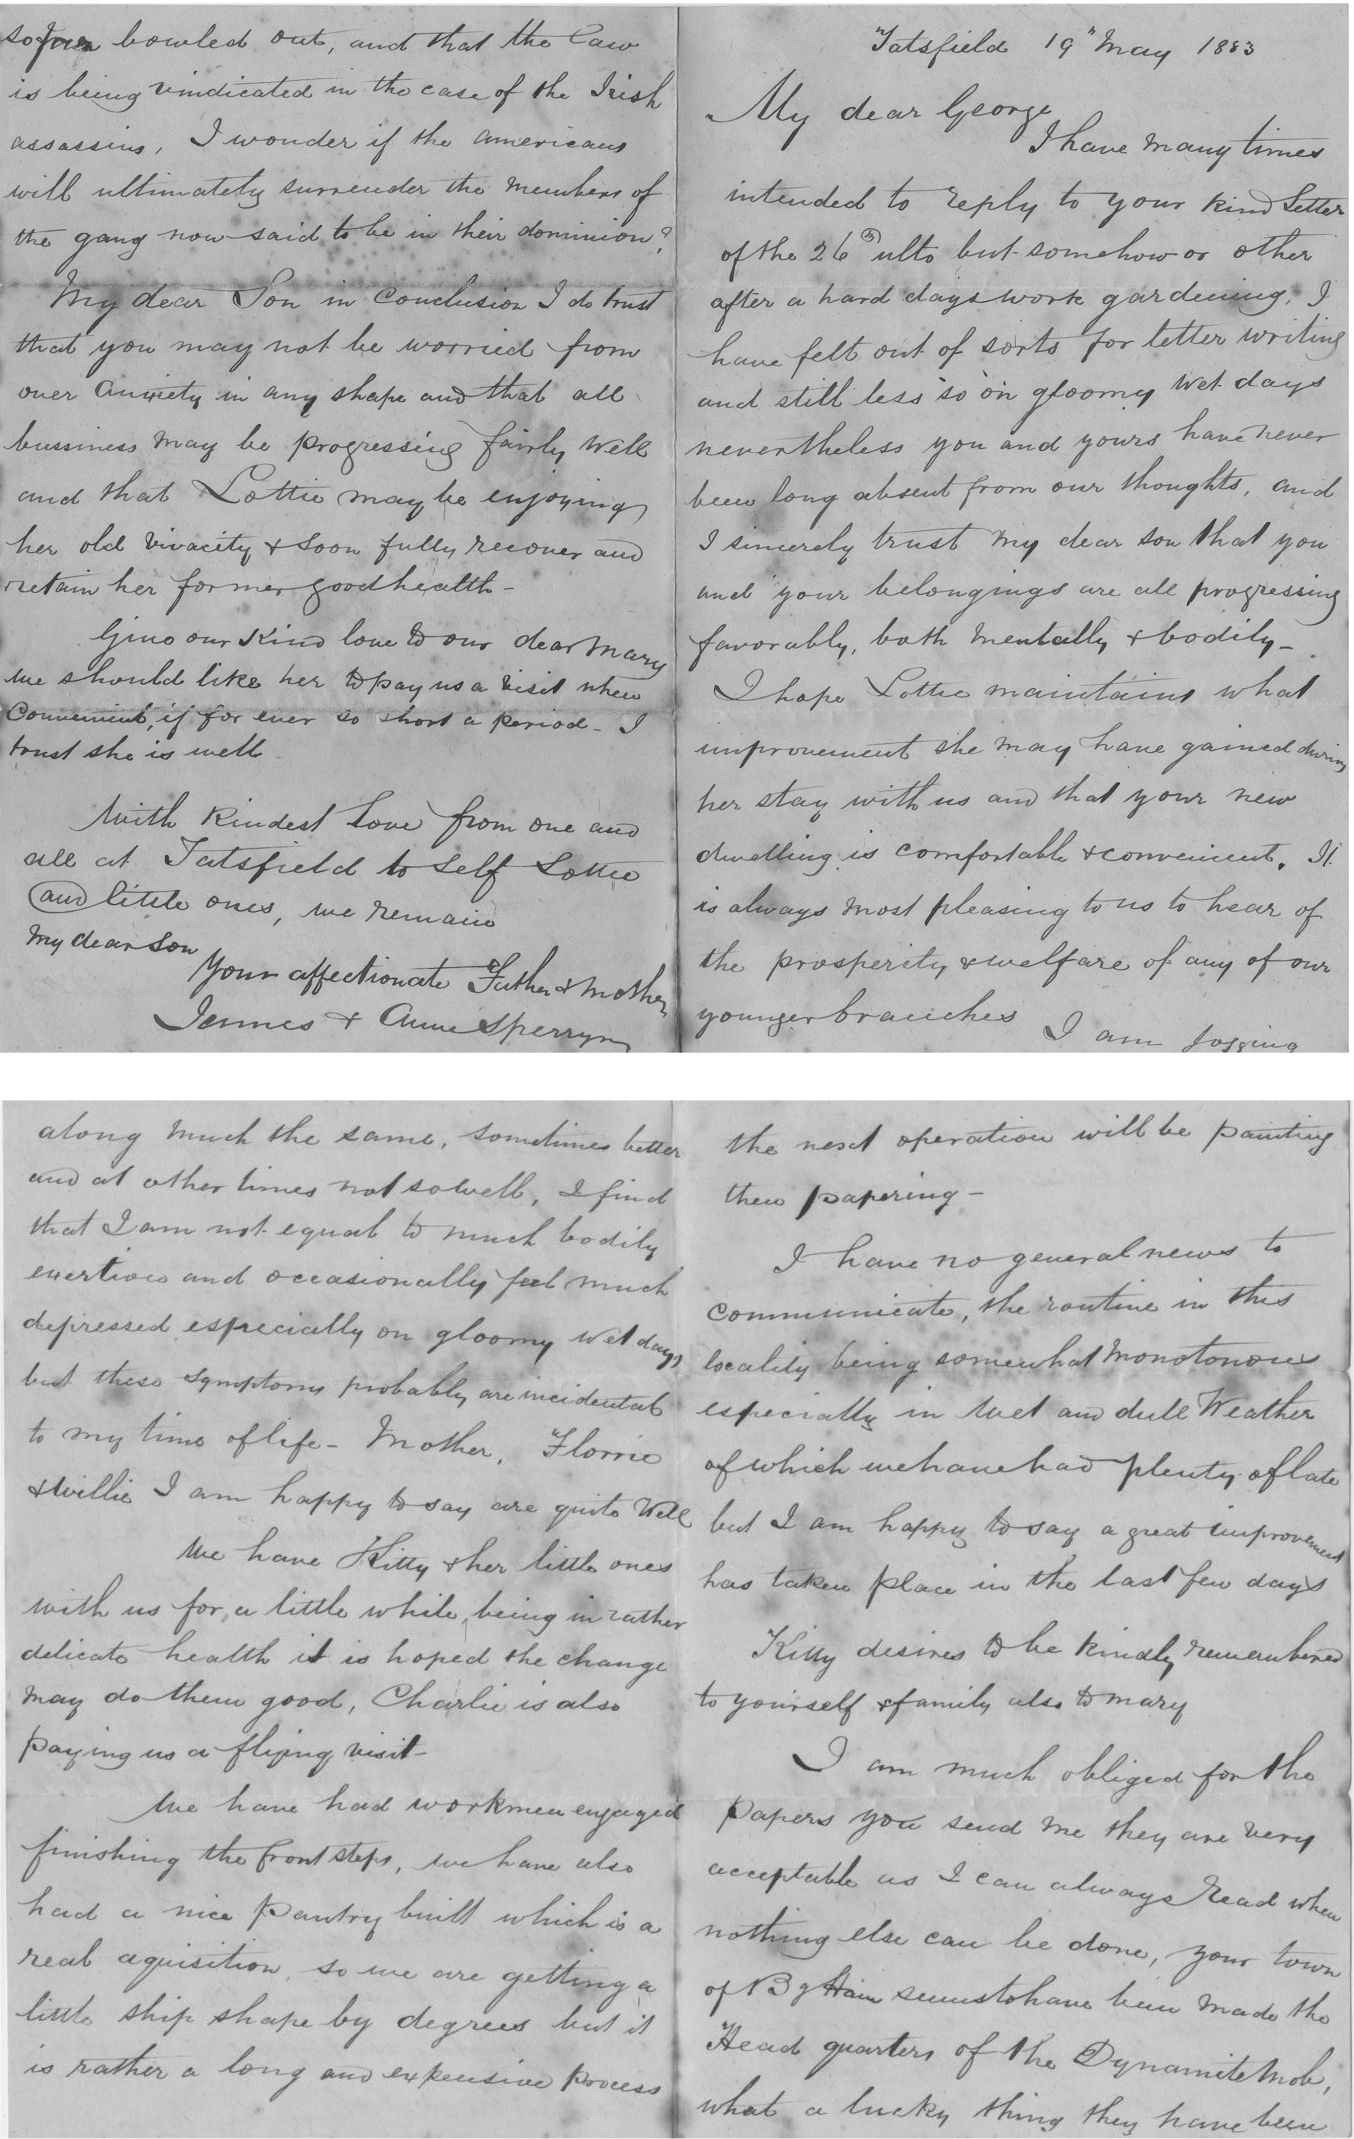 Tatsfield 19" May 1883
My dear George
I have many times
intended to reply to your kind Letter
of the 26 ulto but somehow or other
after a hard days work gardening, I
have felt out of sorts for letter writing
and still less so on gloomy wet days
nevertheless you and yours have never
been long absent from our thoughts, and
I sincerely trust my dear son that you
and your belongings are all progressing
favorably, both mentally & bodily -
I hope Lottie maintains what
improvement she may have gained during
her stay with us and that your new
dwelling is comfortable & convenient. It
is always most pleasing to us to hear of
the prosperity & welfare of any of our
younger branches
I am jogging
along much the same, sometimes better
and at other times not so well, I find
that I am not equal to much bodily
exertion and occasionally feel much
depressed especially on gloomy wet days
but these symptoms probably are incidental
to my time of life - Mother, Florrie
& Willie I am happy to say are quite Well
We have Kitty & her little ones
with us for a little while, being in rather
delicate health it is hoped the change
may do them good, Charlie is also
paying us a flying visit -
We have had workmen engaged
finishing the front steps, we have also
had a nice pantry built which is a
real aquisition, so we are getting a
little ship shape by degrees but it
is rather a long and expensive process
the next operation will be painting
then papering -
I have no general news to
communicate, the routine in this
locality being somewhat monotonous
especially in wet and dull Weather
of which we have had plenty of late
but I am happy to say a great improvement
has taken place in the last few days
Kitty desires to be kindly remembered
to yourself & family also to Mary
I am much obliged for the
papers you send me they are very
acceptable as I can always read when
nothing else can be done, your town
of B'gham seems to have been made the
Head quarters of the Dynamite Mob,
what a lucky thing they have been
so bowled out, and that the Law
is being vindicated in the case of the Irish
assassins, I wonder if the americans
will ultimately surrender the members of
the gang now said to be in their dominion?
My dear Son in conclusion I do trust
that you may not be worried from
over anxiety in any shape and that all
bussiness may be progressing fairly well
and that Lottie may be enjoying
her old vivacity & soon fully recover and
retain her former good health -
Give our kind love to our dear Mary
we should like her to pay us a visit when
convenient, if for ever so short a period - I
trust she is well
With kindest Love from one and
all at Tatsfield to self Lottie
and little ones, we remain
My dear Son
Your affectionate Father & Mother
James & Anne Sperryn